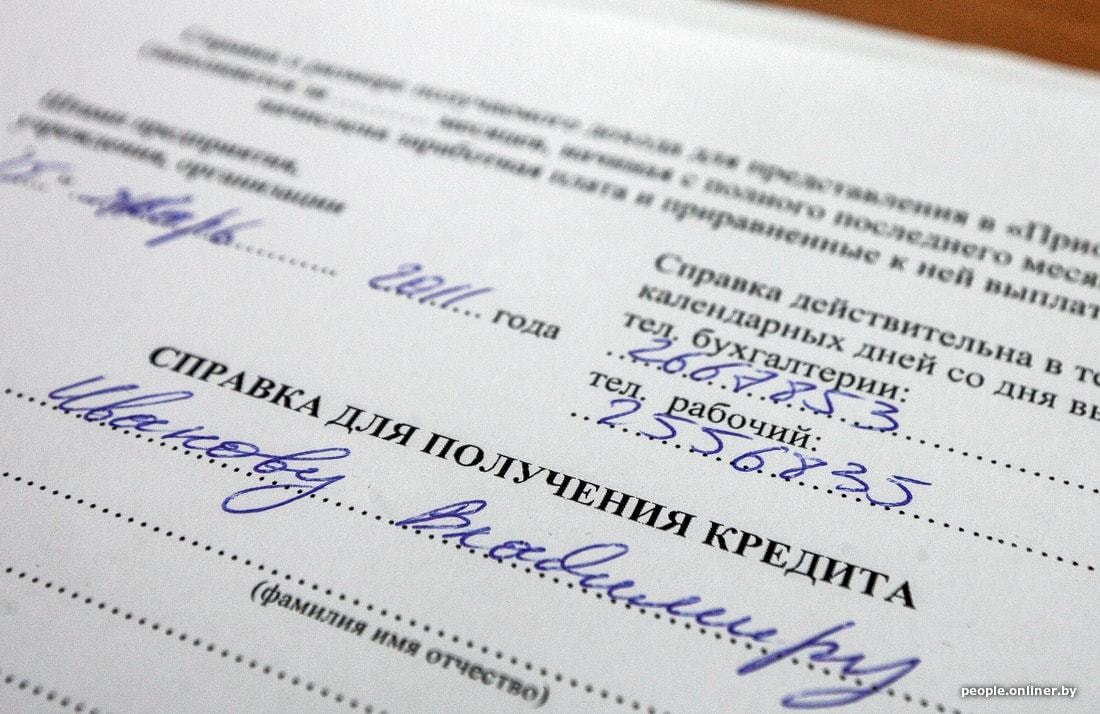 Справка о размере получаемого дохода для представления в «Прио
(заполняется за ............ месяцев, начиная с полного последнего меся
начислена заработная плата и приравненные к ней выплат
Штамп предприятия,
учреждения, организации
январь
2011 года
Справка действительна в те
календарных дней со дня вы
тел. бухгалтерии:
2667853
тел. рабочий:
2556835
СПРАВКА ДЛЯ ПОЛУЧЕНИЯ КРЕДИТА
Иванову Владимиру
(фамилия имя отчество)
people.onliner.by